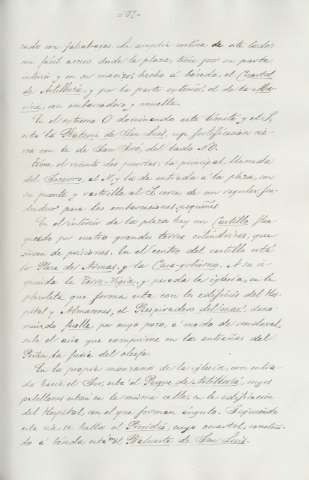 cado con
fácil acceso desde la plaza, tiene por su parte
interior y en su macizo, hecho á bóveda, el Cuartel
de Artillería, y por la parte exterior, el de la Ma-
rina, con embarcadero y muelle.
En el extremo O dominando este límite y el S,
está la Batería de San Luis, cuya fortificación cie-
rra con la de San José, del lado N.O.
Tiene el recinto dos puertas: la principal, llamada
del Socorro, al N, y la de entrada á la plaza, con
su puente y rastrillo al E cerca de un regular fon-
deadero para las embarcaciones pequeñas.
En el interior de la plaza hay un Castillo flan-
queado por cuatro grandes torres cilíndricas, que
sirven de prisiones. En el centro del castillo está
la Plaza de Armas, y la Casa-gobierno. A su iz-
quierda la Torre-Vigía, y pasada la iglesia, en la
plazoleta que forma esta con la edificación del Hos-
pital y Almacenes, el Respiradero del mar, deno-
minado fuelle, por cuyo pozo, á modo de vendaval,
sale el aire que comprime en las entrañas del
Peñón la furia del oleaje.
En la propia manzana de la iglesia, con entra-
da hacia el Sur, está el Parque de Artillería, cuyos
pabellones están en la misma calle, en la edificación
del Hospital, con el que forman ángulo. Siguiendo
esta vía se halla el Presidio, cuyo cuartel, construi-
do á bóveda está en el Baluarte de San Luis.